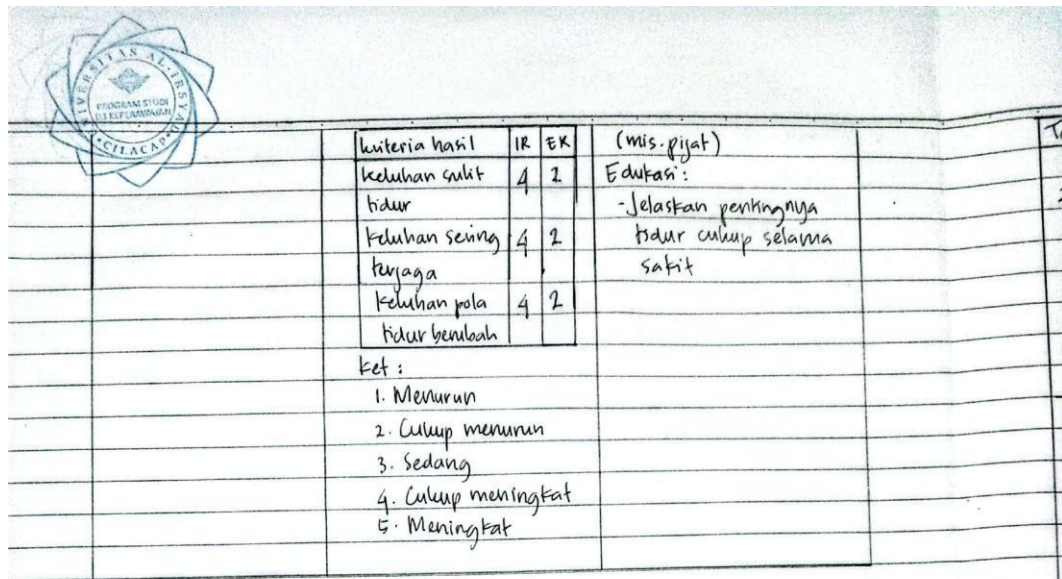 UNIVERSITAS AL-IRSYAD
PROGRAM STUDI
D3 KEPERAWATAN
CILACAP
kriteria hasil IR EK
keluhan sulit 4 2
tidur
keluhan sering 4 2
terjaga
keluhan pola 4 2
tidur berubah
ket :
1. Menurun
2. Cukup menurun
3. Sedang
4. Cukup meningkat
5. Meningkat
(mis. pijat)
Edukasi :
- Jelaskan pentingnya
tidur cukup selama
sakit